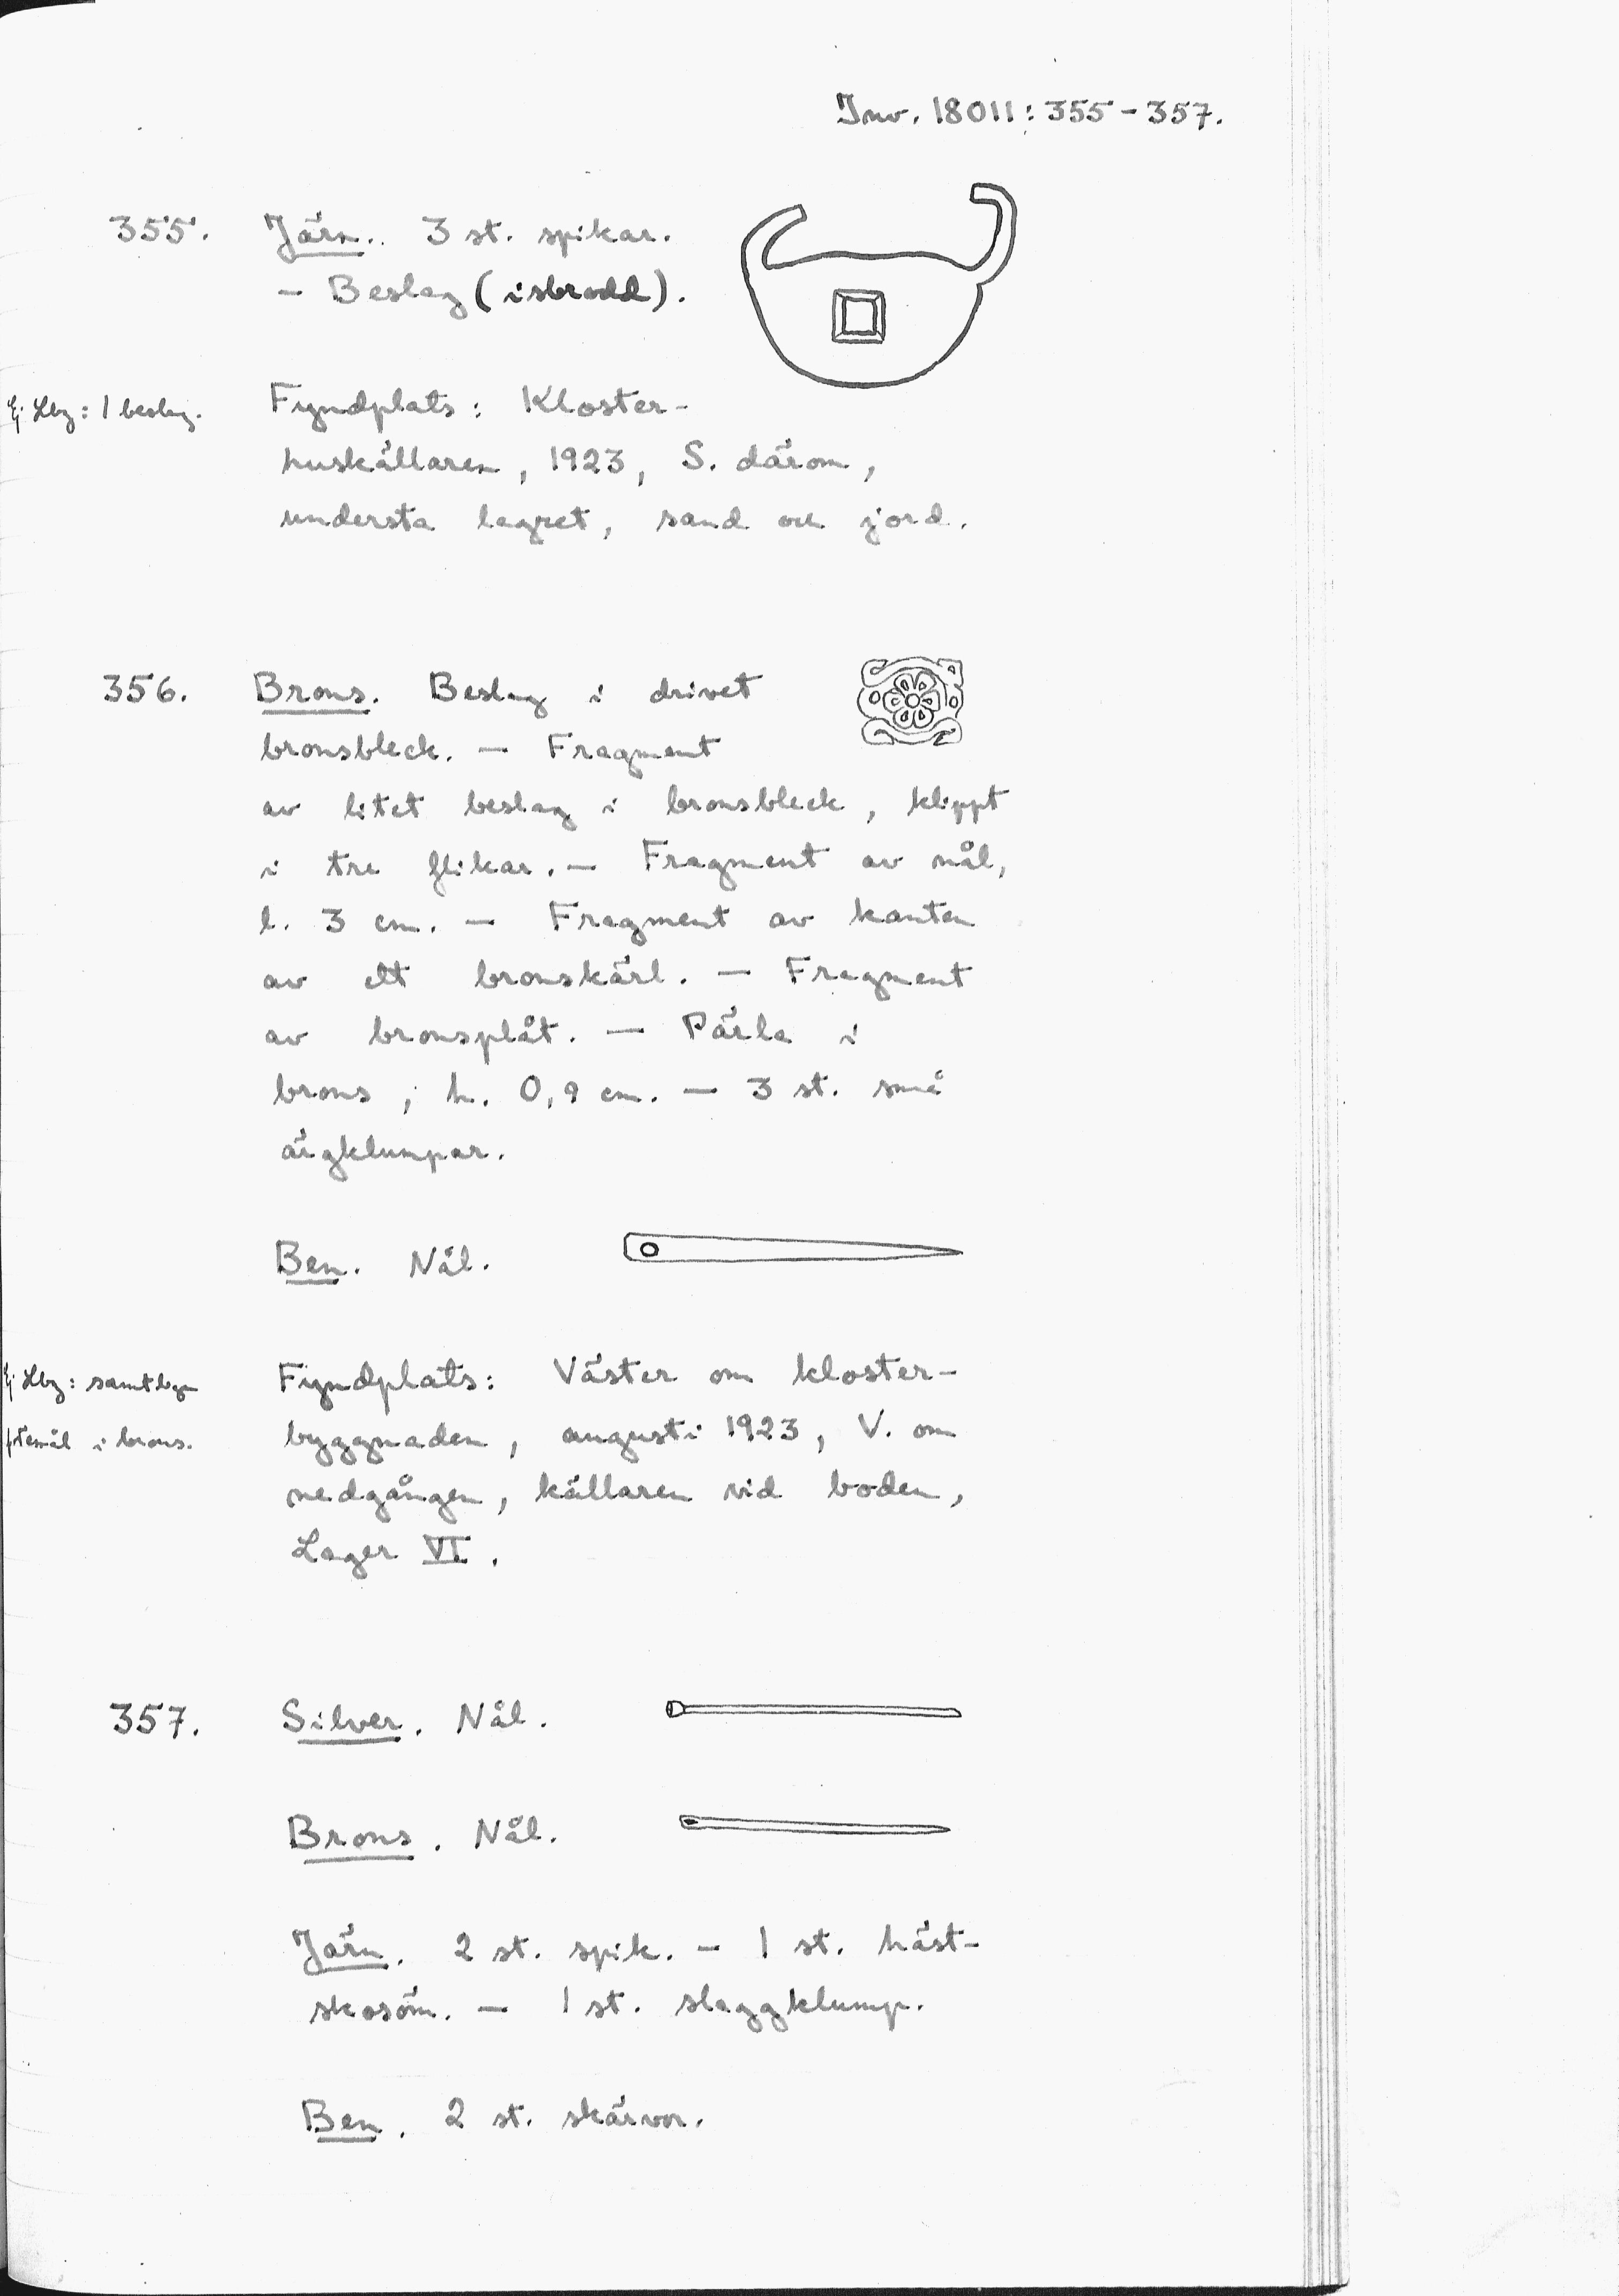 Inv. 18011: 355-357.
355. Järn. 3 st. spikar.
- Beslag (isbrodd).
Ej Lbg: 1 beslag.
Fyndplats: Kloster-
huskällaren, 1923, S. därom,
understa lagret, sand och jord.
356. Brons. Beslag i drivet
bronsbleck. - Fragment
av litet beslag i bronsbleck, klippt
i tre flikar. - Fragment av nål,
l. 3 cm. - Fragment av kanten
av ett bronskärl. - Fragment
av bronsplåt. - Pärla i
brons; h. 0,9 cm. - 3 st. små
ärgklumpar.
Ben. Nål.
Ej Lbg: samtliga
föremål i brons.
Fyndplats: Väster om kloster-
byggnaden, augusti 1923, V. om
nedgången, källaren vid boden,
Lager VI.
357. Silver. Nål.
Brons. Nål.
Järn. 2 st. spik. - 1 st. häst-
skosöm. - 1 st. slaggklump.
Ben. 2 st. skärvor.